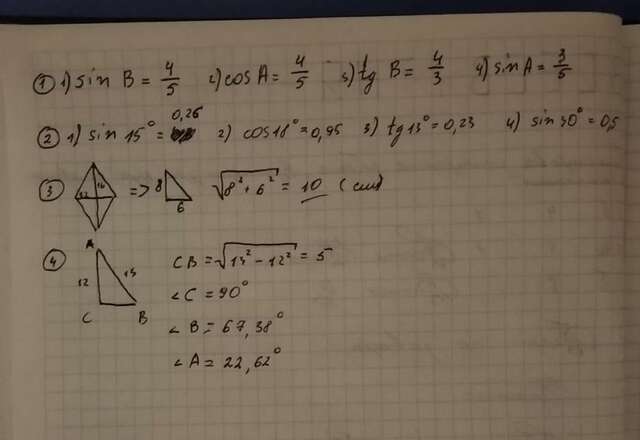 ① 1) sin B = 4/5 2) cos A = 4/5 3) tg B = 4/3 4) sin A = 3/5
② 1) sin 15° = 0,26 2) cos 18° = 0,95 3) tg 13° = 0,23 4) sin 30° = 0,5
③ 12 16 => 8 6 √(8² + 6²) = 10 (см)
④ A 12 13 C B CB = √(13² - 12²) = 5
∠C = 90°
∠B = 67,38°
∠A = 22,62°